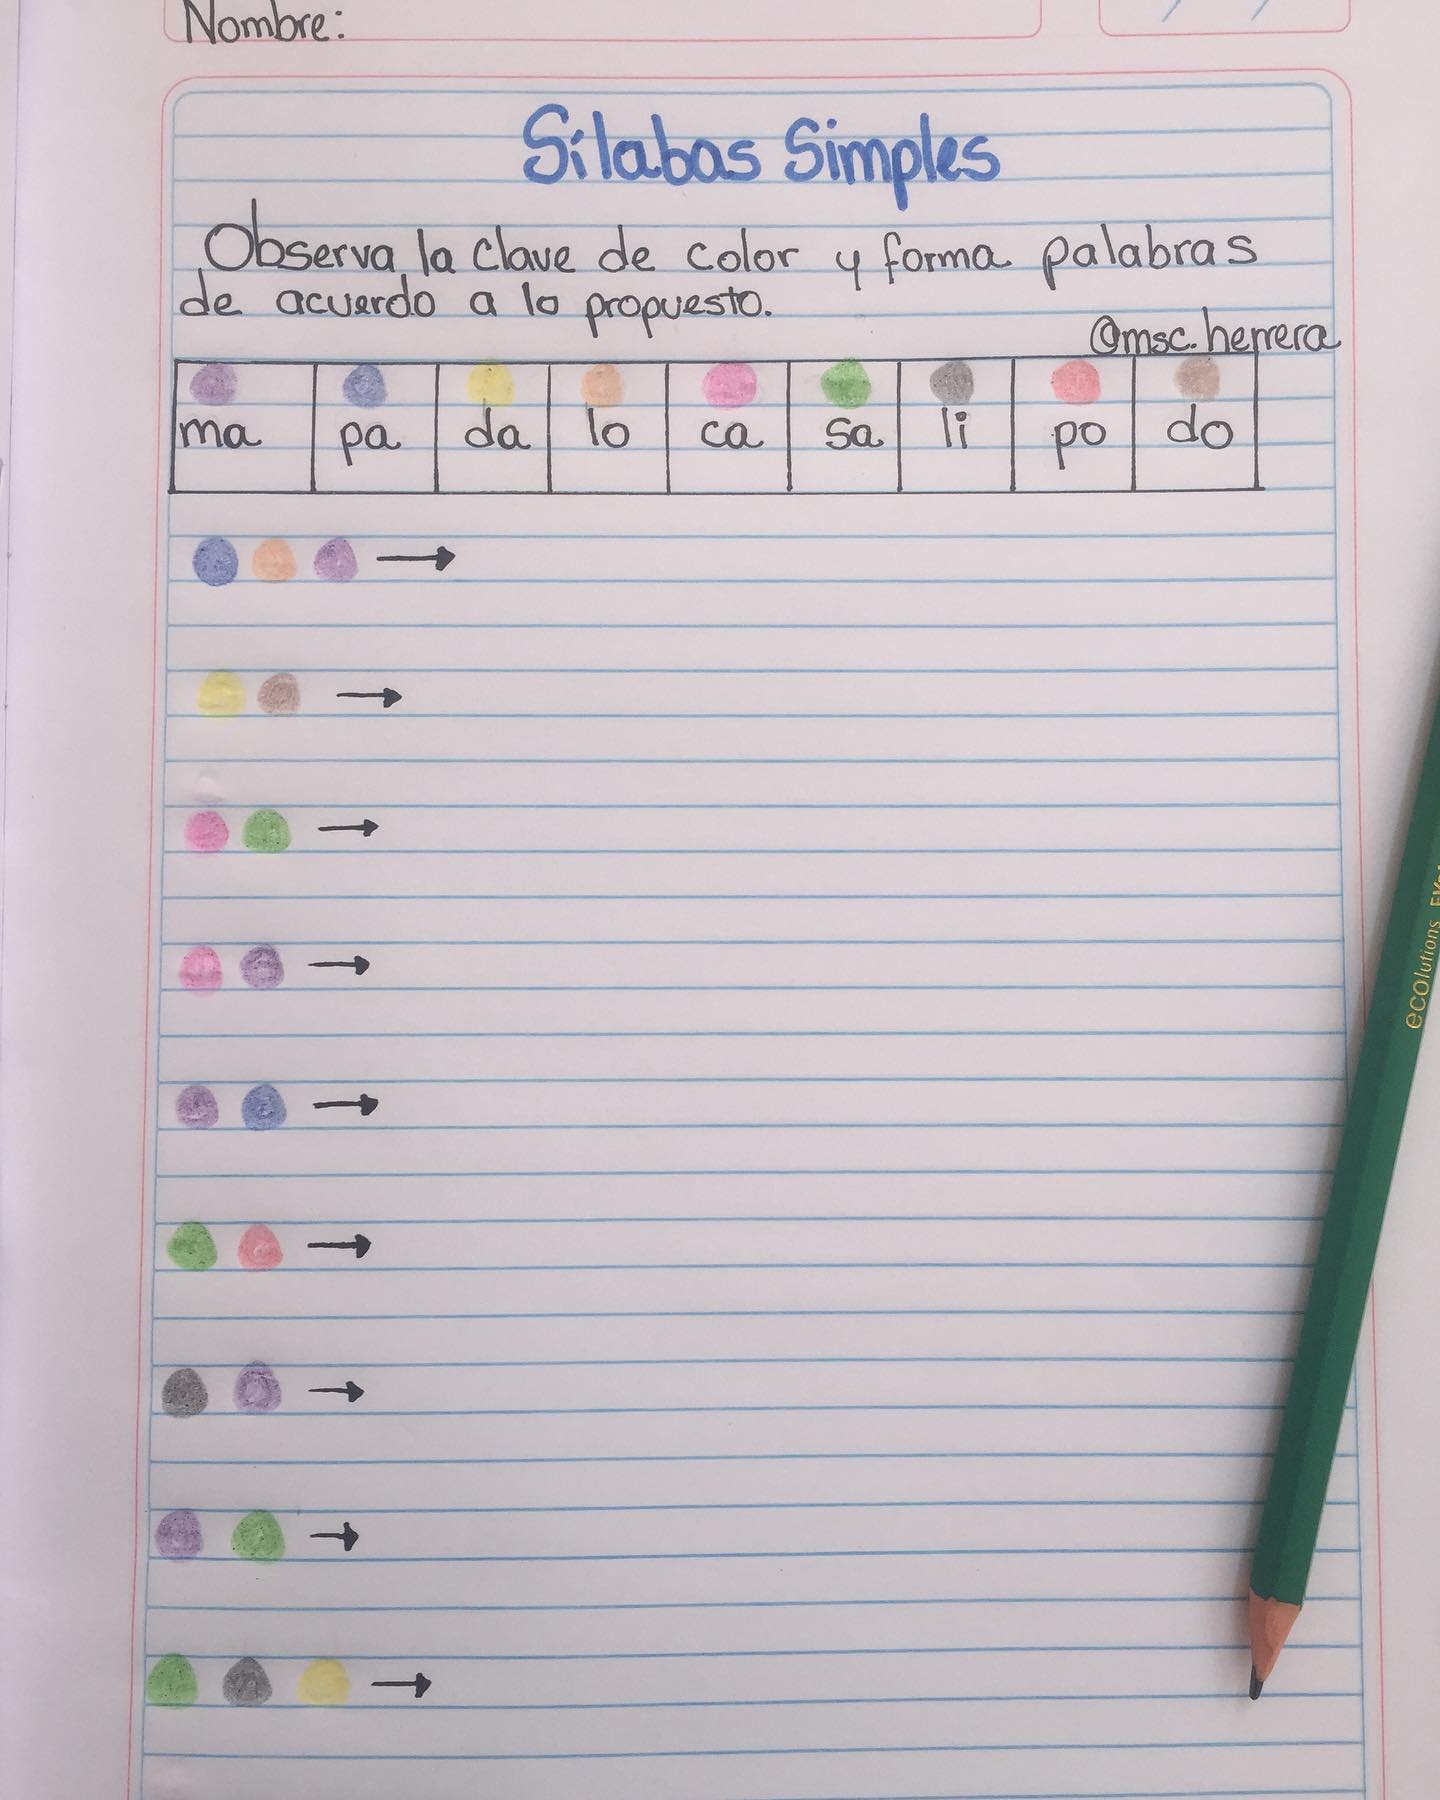 Nombre:
Sílabas Simples
Observa la clave de color y forma palabras
de acuerdo a lo propuesto.
@msc.herrera
ma pa da lo ca sa li po do
ecolutions